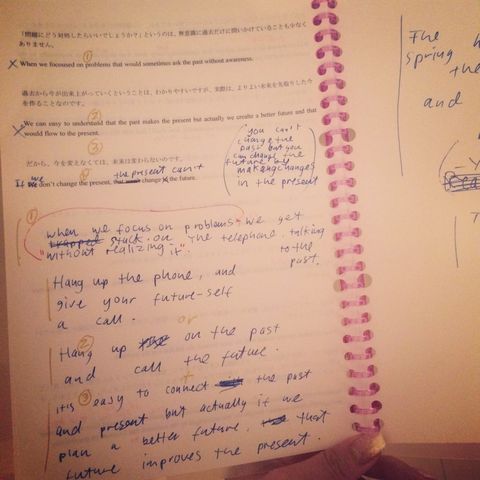 「問題にどう対処したらいいでしょうか？」というのは、無意識に過去だけに問いかけていることも少なく
ありません。
①
X When we focussed on problems that would sometimes ask the past without awareness.
過去から今が出来上がっていくということは、わかりやすいですが、実際は、よりよい未来を先取りした今
を作ることなのです。
②
We can easy to understand that the past makes the present but actually we create a better future and that
would flow to the present.
③
だから、今を変えなくては、未来は変わらないのです。
we the present can't
If we don't change the present, that change the future.
(you can't
change the
past but you
can change the
future by
making changes
in the present)
①
when we focus on problems we get
stuck on the telephone, talking
"without realizing it" to the
past.
Hang up the phone, and
give your future-self
a call.
or
②
Hang up on the past
and call the future.
③
it is easy to connect the past
and present but actually if we
plan a better future, that
future improves the present.
The
spring
the
and